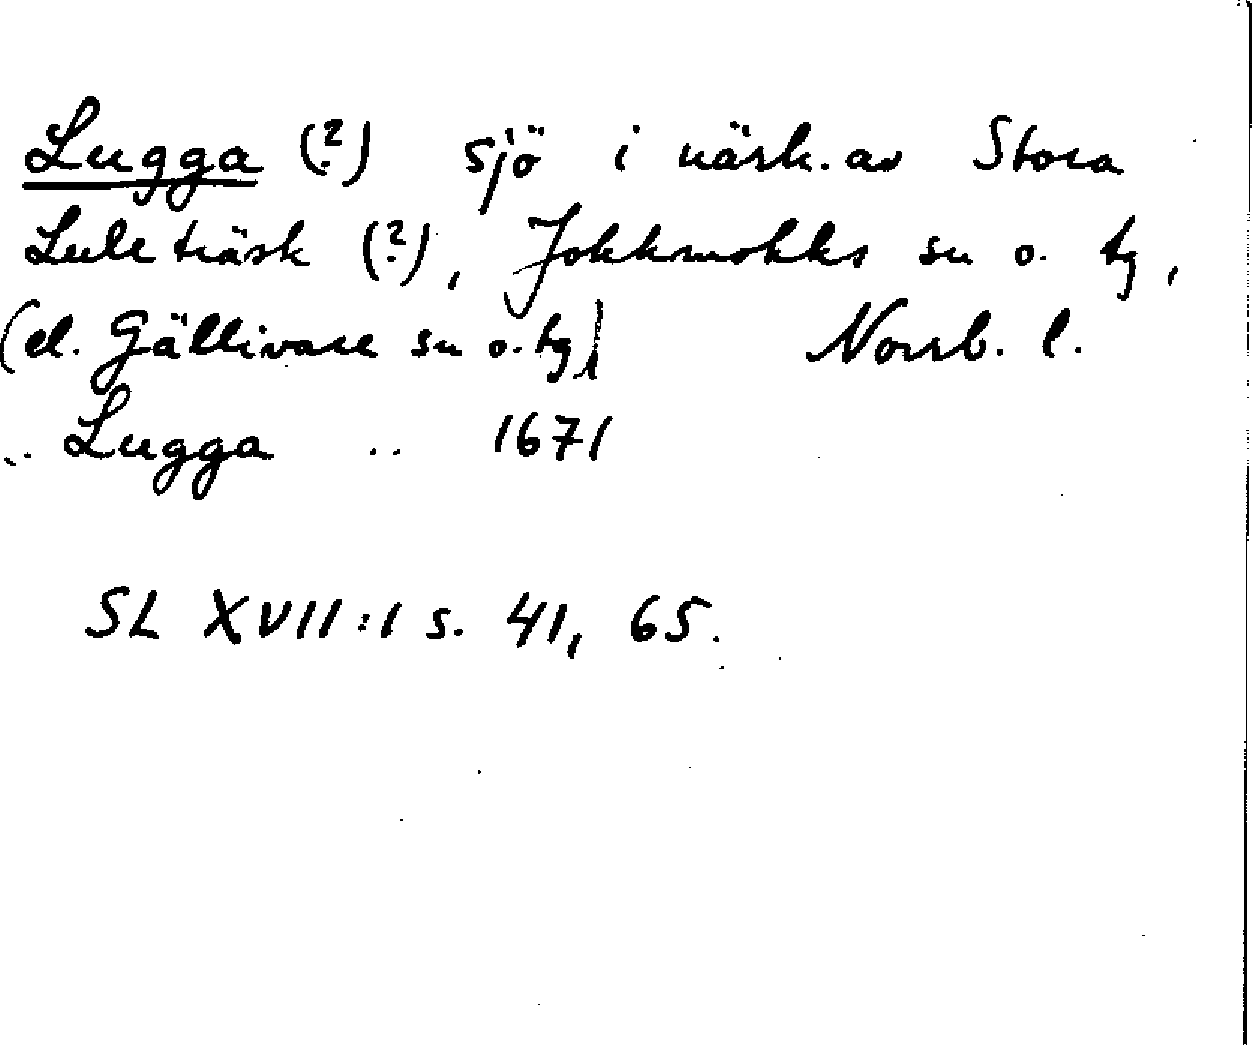 Lugga (?) sjö i närh. av Stora
Lule träsk (?), Jokkmokks sn o. tg,
(el. Gällivare sn o. tg)
Norrb. l.
.. Lugga .. 1671
SL XVII:1 s. 41, 65.